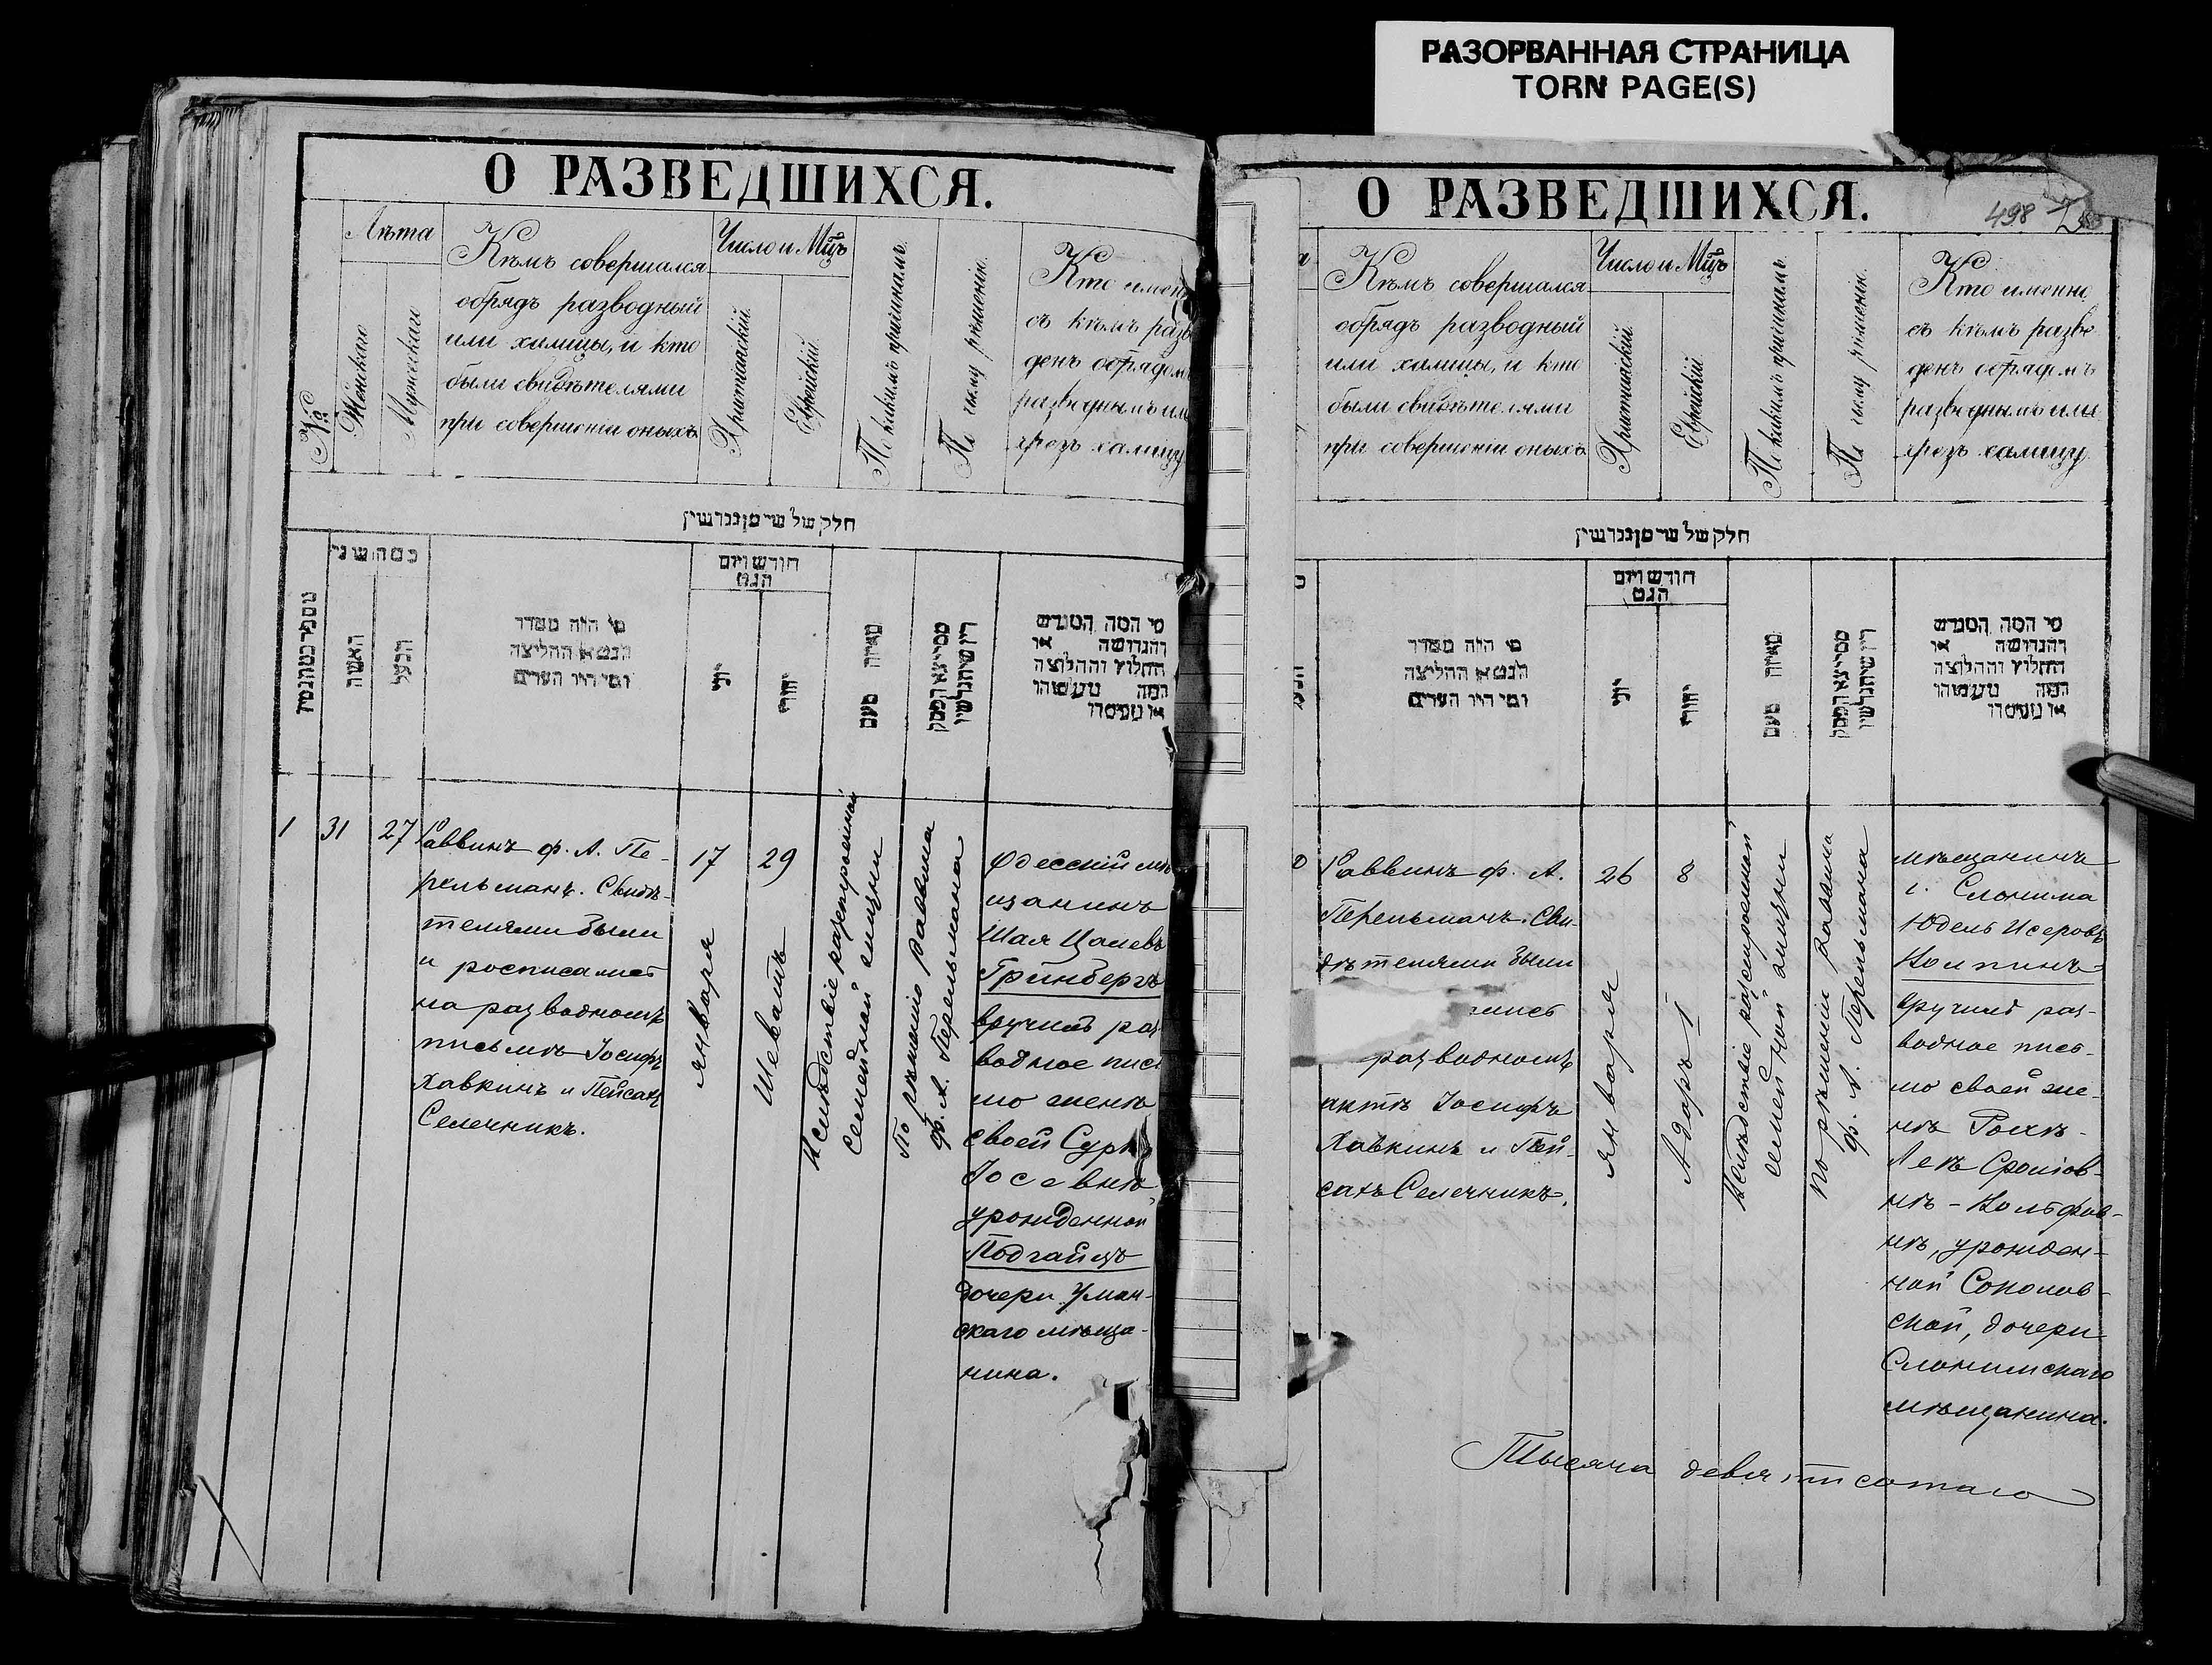 РАЗОРВАННАЯ СТРАНИЦА
TORN PAGE(S)
О РАЗВЕДШИХСЯ.
№
Лѣта
Женскаго
Мужескаго
Кѣмъ совершался
обрядъ разводный
или халицы, и кто
были свидѣтелями
при совершеніи оныхъ
Число и Мцъ
Христіанскій.
Еврейскій.
По какимъ причинамъ.
По чьему рѣшенію.
Кто имен
съ кѣмъ разв
денъ обрядом
разводнымъ ил
чрезъ халицу
חלק של שייסן נגרושין
האשה
הבעל
מי היה מסדר
הגט או החליצה
ומי היו העדים
חודש ויום
הגט
יוני
יהודי
מאיזה טעם
מי המה המגרש
והגרושה או
החולץ והחלוצה
1
31
27
Раввинъ ф. А. Пе-
рельманъ. Свидѣ-
телями были
и росписались
на разводномъ
письмѣ Іосифъ
Хавкинъ и Пейсахъ
Селечникъ.
17
января
29
Шеватъ
Вслѣдствіе разстроенной
семейной жизни
По рѣшенію раввина
ф. А. Перельмана
Одесскій мѣ
щанинъ
Шая Цалевъ
Гринбергъ
вручилъ раз
водное пись
мо женѣ
своей Сурѣ
Іосевнѣ,
урожденной
Подгаецъ
дочери Уман-
скаго мѣща-
нина.
О РАЗВЕДШИХСЯ.
498
Кѣмъ совершался
обрядъ разводный
или халицы, и кто
были свидѣтелями
при совершеніи оныхъ
Число и Мцъ
Христіанскій.
Еврейскій.
По какимъ причинамъ.
По чьему рѣшенію.
Кто именно,
съ кѣмъ разве
денъ обрядомъ
разводнымъ или
чрезъ халицу.
חלק של שייסן נגרושין
מי היה מסדר
הגט או החליצה
ומי היו העדים
חודש ויום
הגט
יוני
יהודי
מאיזה טעם
מי המה המגרש
והגרושה או
החולץ והחלוצה
Раввинъ ф. А.
Перельманъ. Сви-
дѣтелями были
разводномъ
актѣ Іосифъ
Хавкинъ и Пей-
сахъ Селечникъ.
26
января
8
Адаръ I
Вслѣдствіе разстроенной
семейной жизни
По рѣшенію раввина
ф. А. Перельмана
мѣщанинъ
г. Слонима
Юдель Исеровъ
Колпинъ
вручилъ раз-
водное пись-
мо своей же-
нѣ
урожден-
ной Соколов-
ской, дочери
Слонимскаго
мѣщанина.
Тысяча девятисотаго